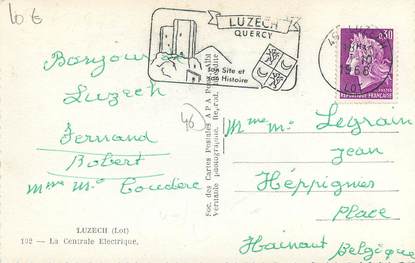 10 €
LUZECH
QUERCY
son Site et
son Histoire
46
1968
0,30
REPUBLIQUE FRANÇAISE
Bonjour de
Luzech
Fernand
Robert
Mme Mr Couderc
(46)
LUZECH (Lot)
102 — La Centrale Electrique.
Soc. des Cartes Postales A P A POUX, Albi
Véritable photographie. Reprod.
Mme Mr Legrain
Jean
Héppignies
Place
Hainaut Belgique